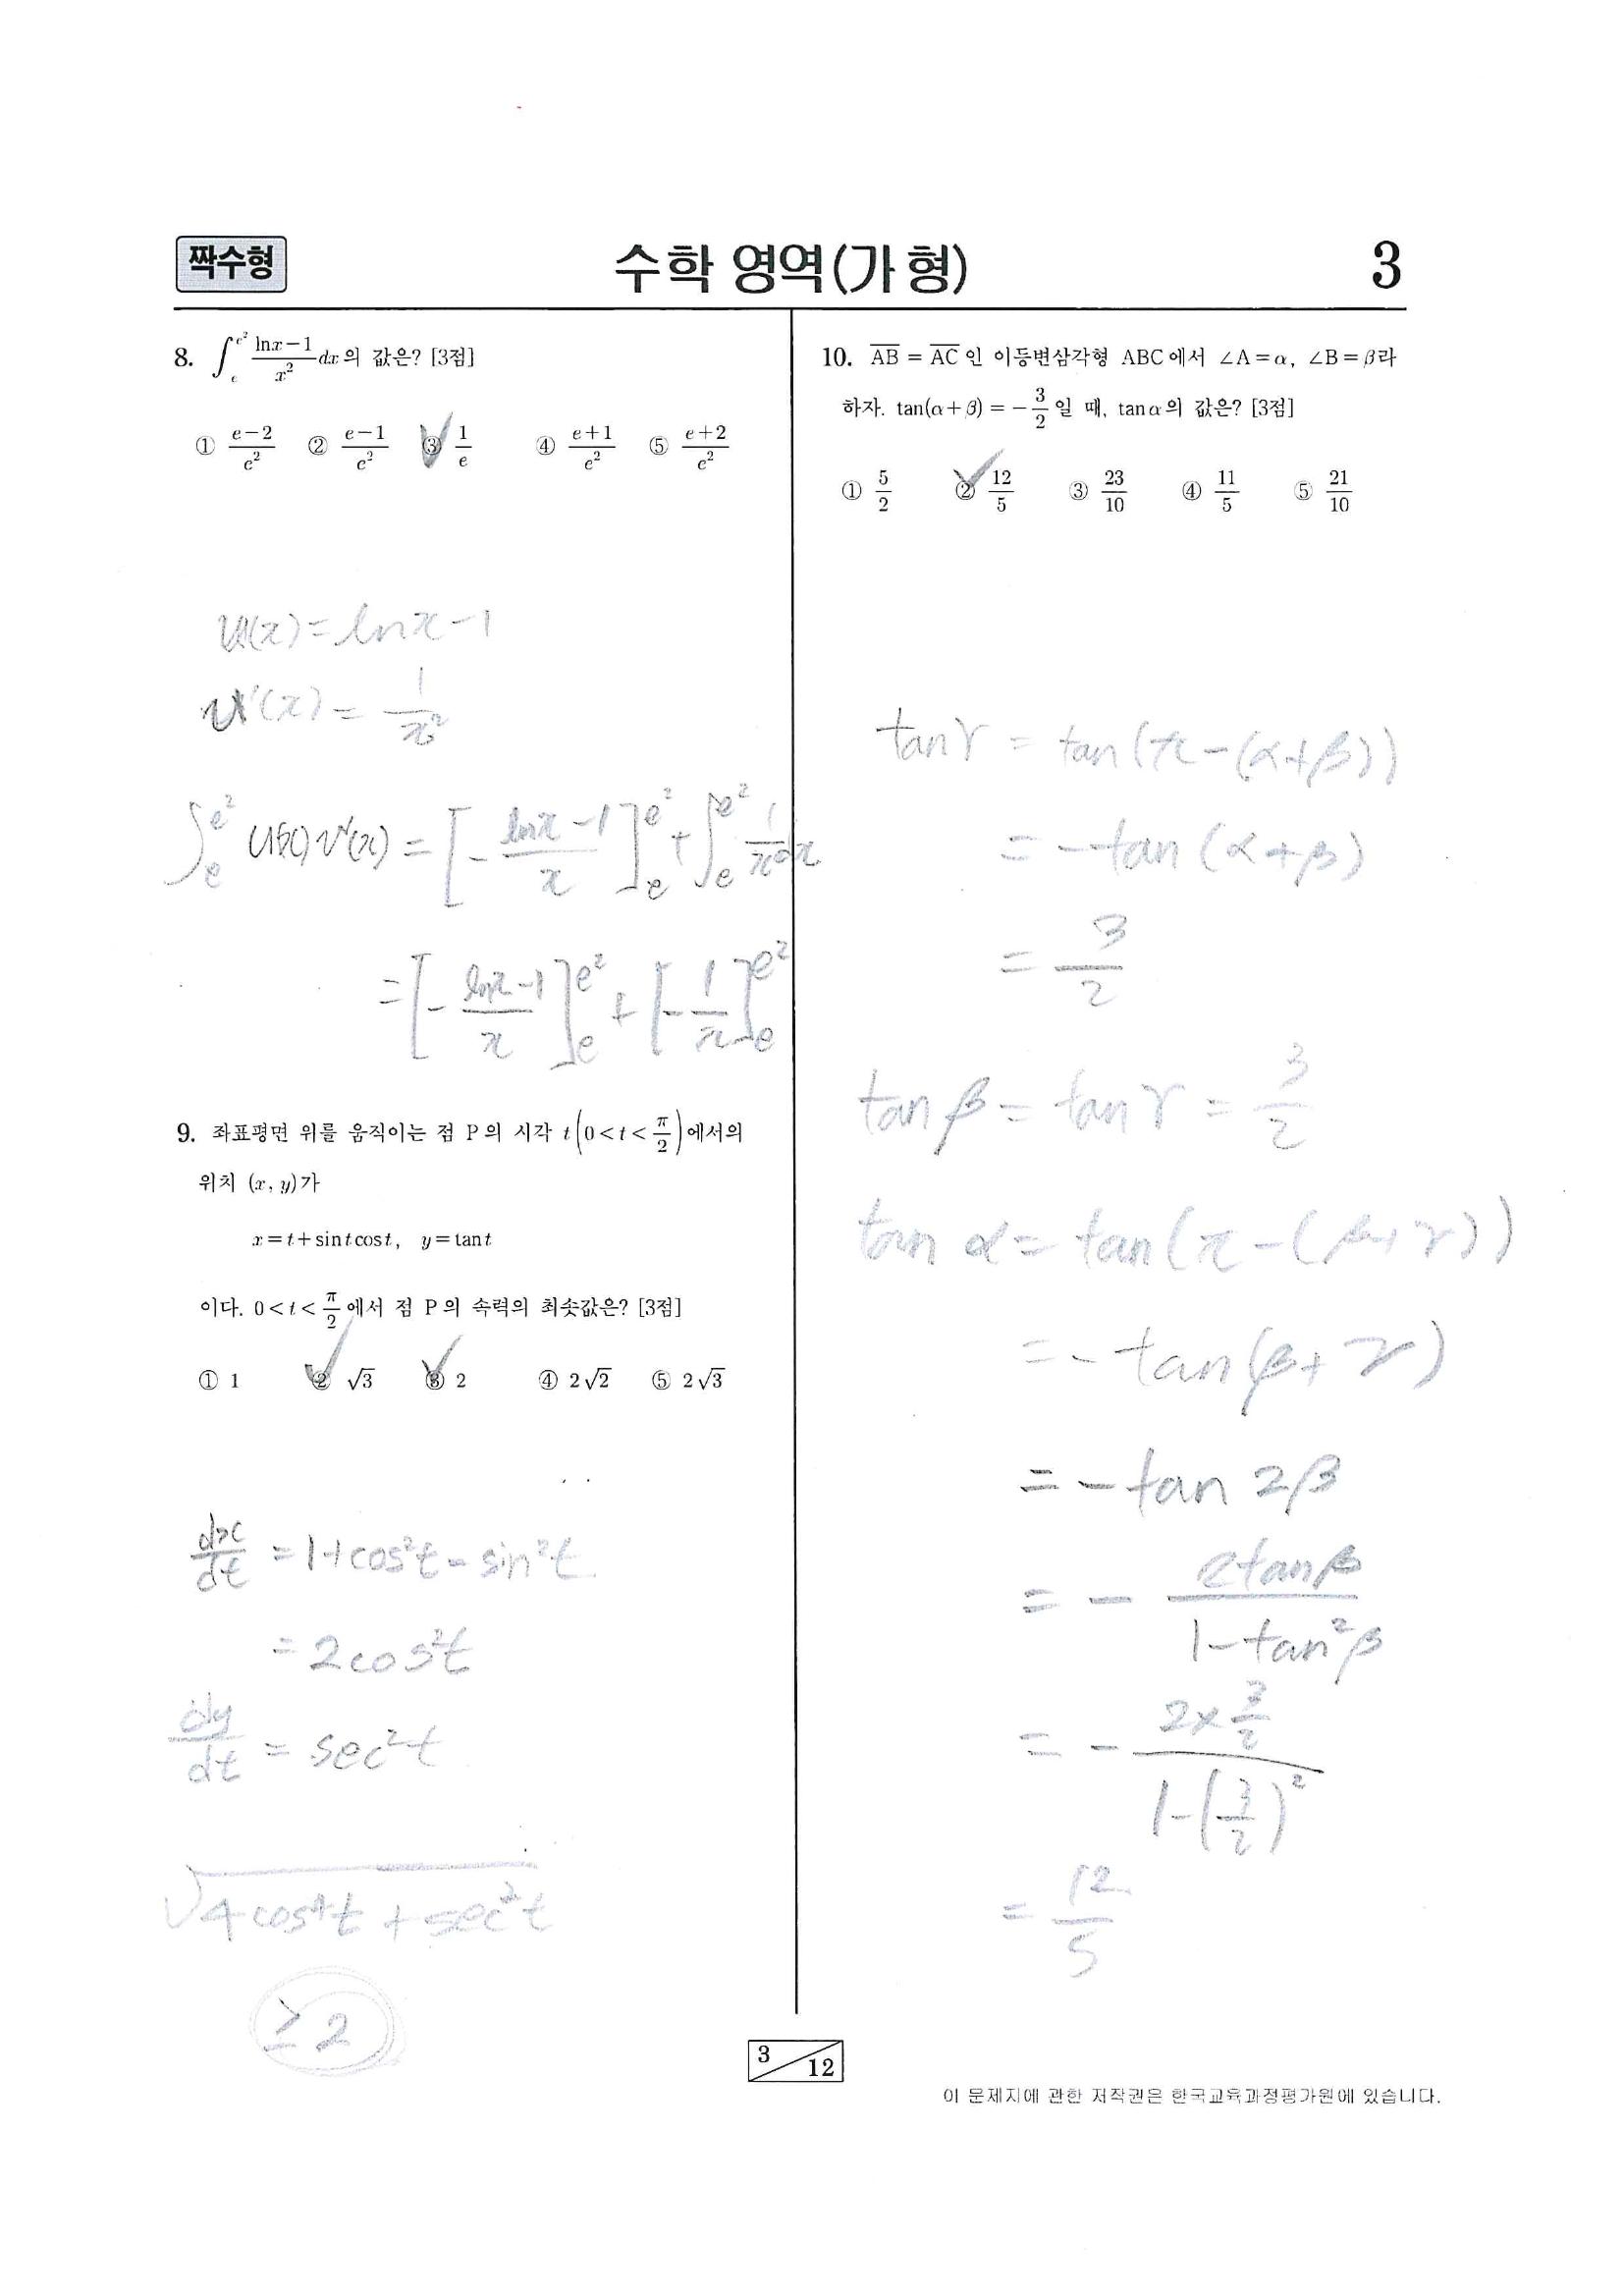 짝수형
수학 영역(가형)
3
8. ∫_e^{e²} (ln x − 1)/x² dx 의 값은? [3점]
① (e−2)/e² ② (e−1)/e² ③ 1/e ④ (e+1)/e² ⑤ (e+2)/e²
u(x) = ln x − 1
v'(x) = 1/x²
∫_e^{e²} u(x)v'(x) = [− (ln x − 1)/x]_e^{e²} + ∫_e^{e²} 1/x² dx
= [− (ln x − 1)/x]_e^{e²} + [− 1/x]_e^{e²}
9. 좌표평면 위를 움직이는 점 P의 시각 t(0 < t < π/2)에서의
위치 (x, y)가
x = t + sin t cos t, y = tan t
이다. 0 < t < π/2 에서 점 P의 속력의 최솟값은? [3점]
① 1 ② √3 ③ 2 ④ 2√2 ⑤ 2√3
dx/dt = 1 + cos²t − sin²t
= 2cos²t
dy/dt = sec²t
√(4cos⁴t + sec²t)
≥ 2
10. AB = AC 인 이등변삼각형 ABC에서 ∠A = α, ∠B = β라
하자. tan(α+β) = − 3/2 일 때, tan α의 값은? [3점]
① 5/2 ② 12/5 ③ 23/10 ④ 11/5 ⑤ 21/10
tan γ = tan(π − (α+β))
= −tan(α+β)
= 3/2
tan β = tan γ = 3/2
tan α = tan(π − (β+γ))
= −tan(β+γ)
= −tan 2β
= − 2tanβ/(1−tan²β)
= − (2×3/2)/(1−(3/2)²)
= 12/5
3/12
이 문제지에 관한 저작권은 한국교육과정평가원에 있습니다.